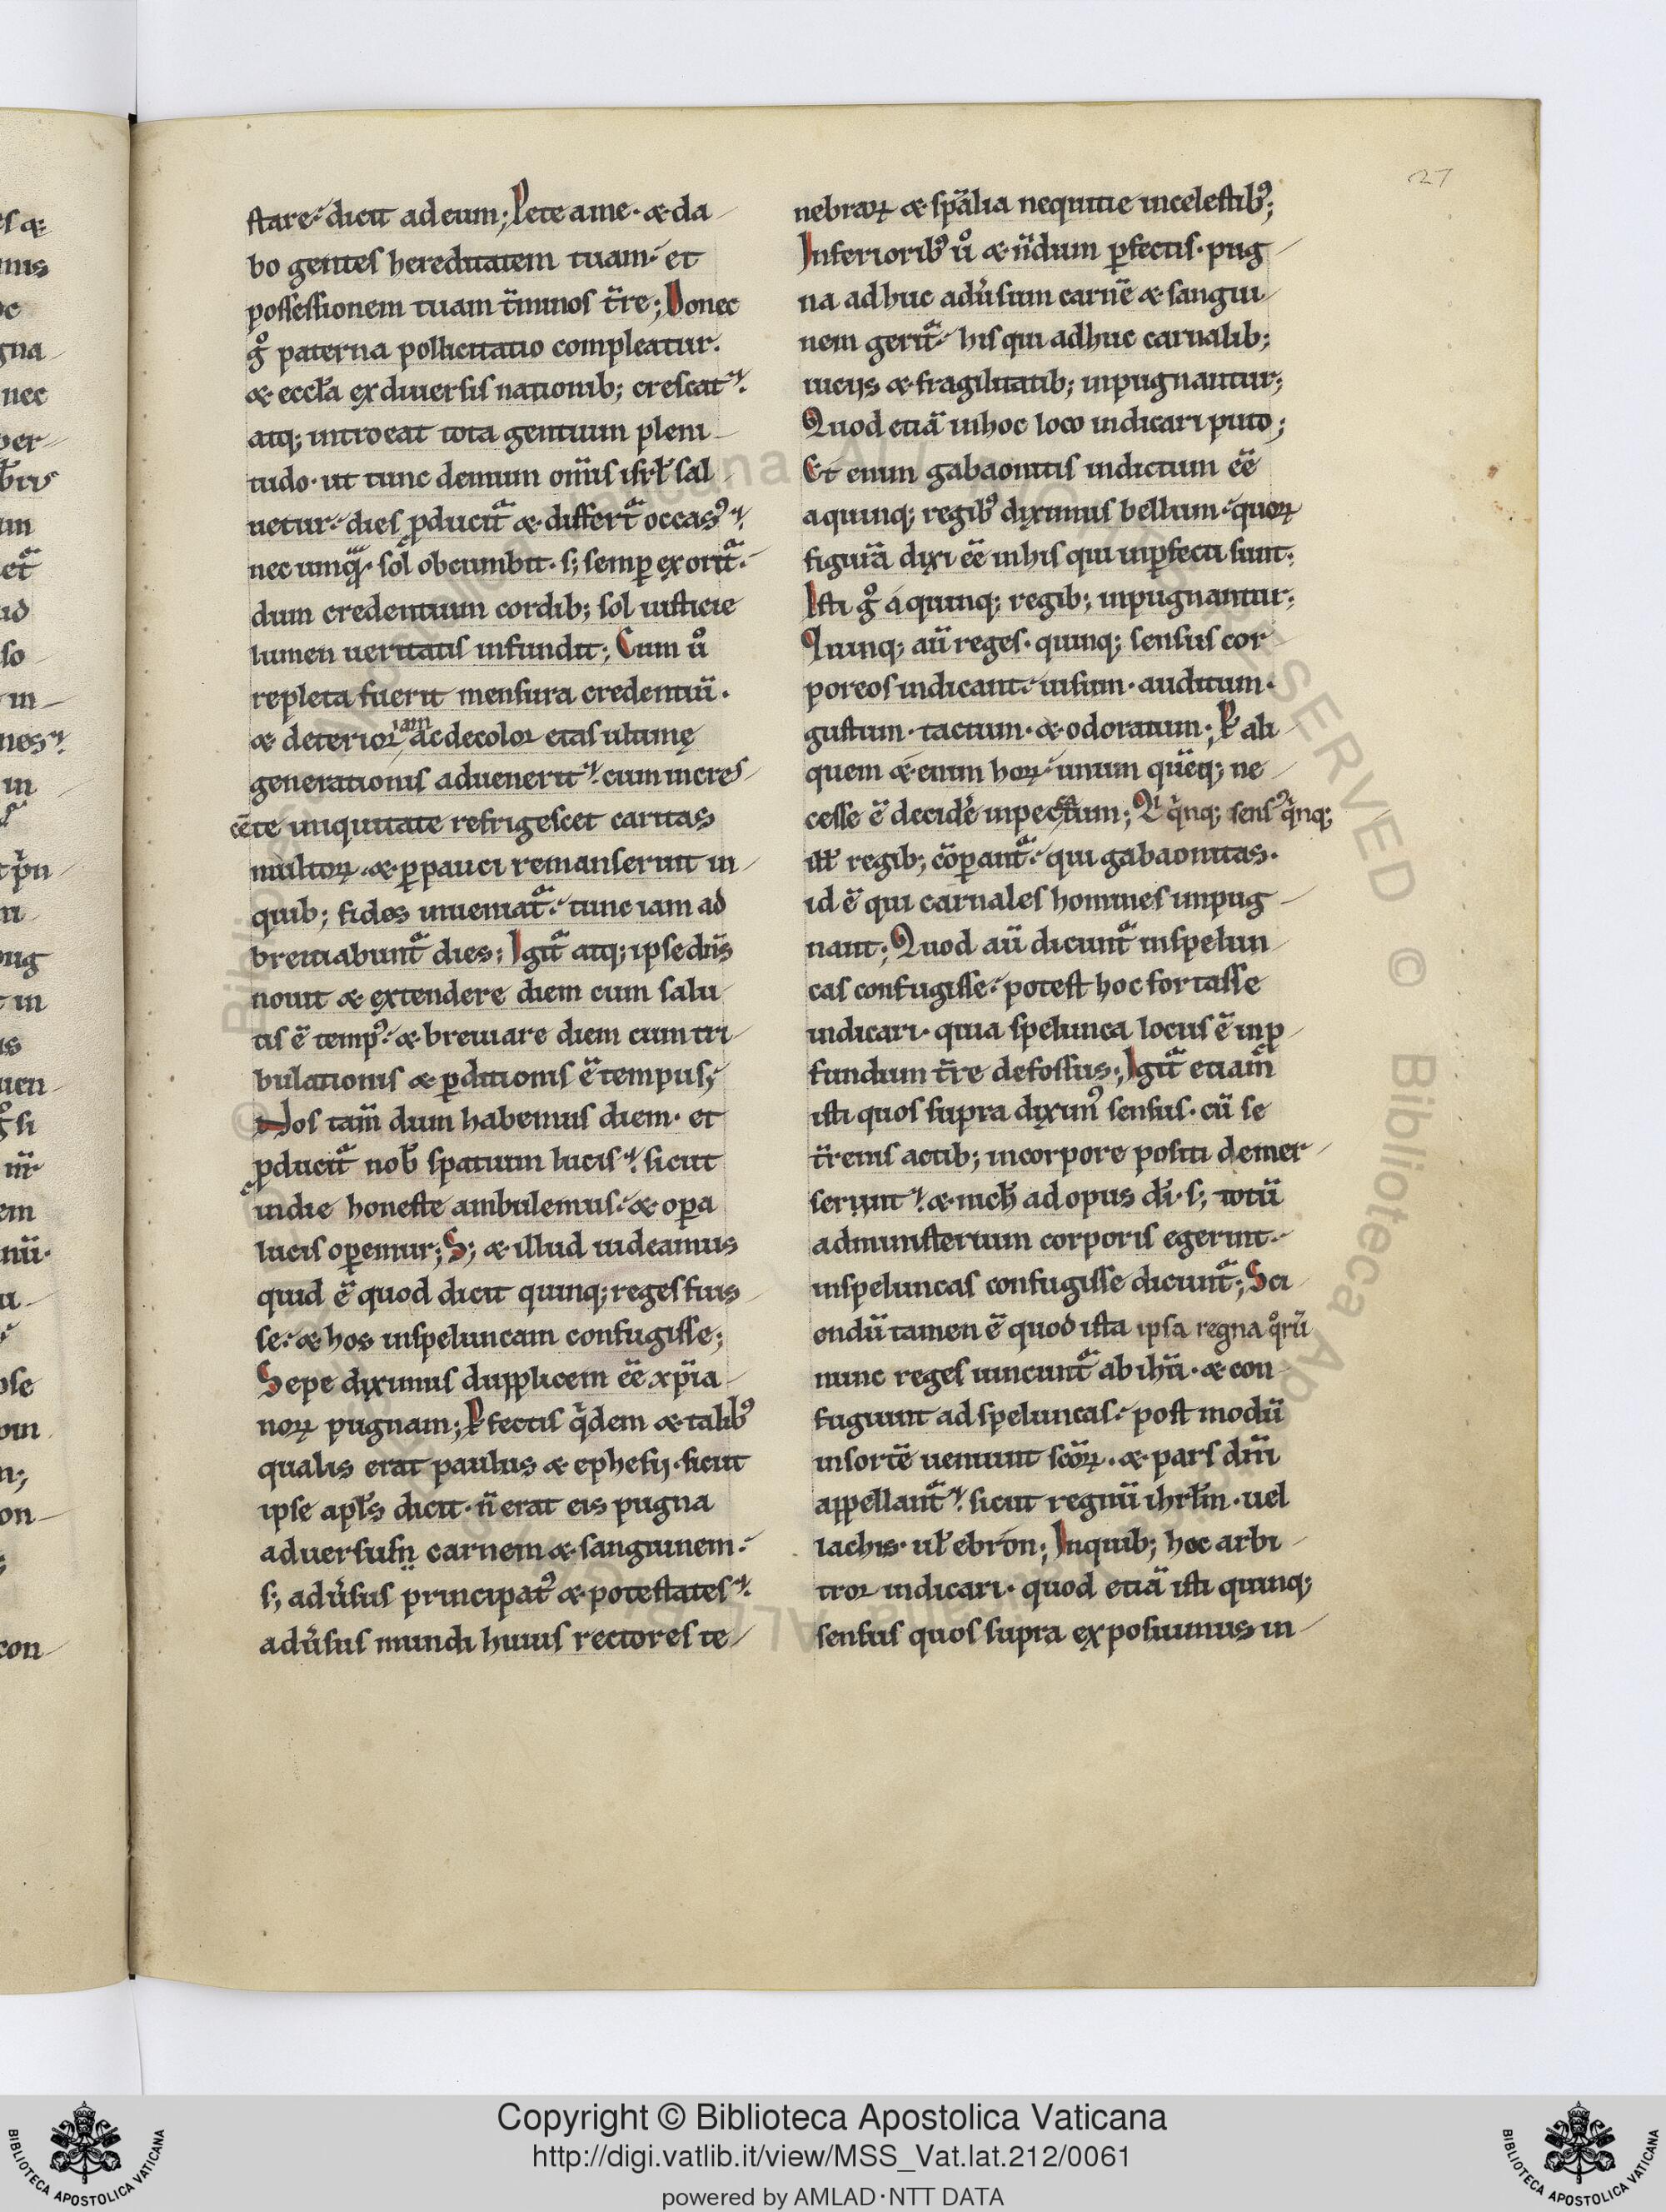 27
stare. dicit ad eum; Pete a me. & da
bo gentes hereditatem tuam. et
possessionem tuam t̄minos t̄re; Donec
gͦ paterna pollicitatio compleatur.
& eccl̄a ex diuersis nationib; crescat.
atq; introeat tota gentium pleni
tudo. ut tunc demum om̄is isrl̄ sal
uetur. dies ꝓducit᷑ & differt᷑ occasꝰ.
nec umq̄. sol obcumbit. s; semꝑ exorit᷑.
dum credentium cordib; sol iusticie
lumen ueritatis infundit; Cum uͦ
repleta fuerit mensura credentiū.
& deterior iam ac decolor etas ultimę
generationis aduenerit. cum incres
cēte iniquitate refrigescet caritas
multoꝝ. & ꝑpauci remanserint in
quib; fides inueniat᷑. tunc iam ad
breuiabunt᷑ dies; Igit᷑ atq; ipse dn̄s
nouit & extendere diem cum salu
tis ē tempꝰ. & breuiare diem cum tri
bulationis & ꝑditionis ē tempus;
Nos tam̄ dum habemus diem. et
ꝓducit᷑ nob̄ spatium lucis. sicut
in die honeste ambulemus. & oꝑa
lucis oꝑemur; S; & illud uideamus
quid ē quod dicit quinq; reges fuis
se. & hos in speluncam confugisse;
Sepe diximus dupplicem ēē xp̄ia
noꝝ pugnam; ꝑfectis qͥdem & talibꝰ
qualis erat paulus & ephesij. sicut
ipse apl̄s dicit. n̄ erat eis pugna
aduersusn carnem & sanguinem.
s; adūsus principatꝰ & potestates.
adūsus mundi huius rectores te
nebraꝝ & sp̄alia nequitie in celestibꝰ;
Inferioribꝰ uͦ & n̄dum ꝑfectis. pug
na adhuc adūsum carnē & sangui
nem gerit᷑. his qui adhuc carnalib;
uicijs & fragilitatib; inpugnantur;
Quod etiā in hoc loco indicari puto;
Et enim gabaonitis indictum ēē
a quinq; regibꝰ diximus bellum. quoꝝ
figurā dixi ēē in his qui inꝑfecti sunt.
Isti gͦ a quinq; regib; inpugnantur;
Quinq; aū reges. quinq; sensus cor
poreos indicant. uisum. auditum.
gustum. tactum. & odoratum; P̄ ali
quem & enim hoꝝ. unum quēq; ne
cesse ē decidē in peccatum; Qͥ qͥnq; sensꝰ qͥnq;
ill̄ regib; cōꝑant᷑. qui gabaonitas.
id ē qui carnales homines inpug
nant; Quod aū dicunt᷑ in spelun
cas confugisse. potest hoc fortasse
indicari. quia spelunca locus ē in ꝓ
fundum t̄re defossus; Igit᷑ etiam
isti quos supra diximꝰ sensus. cū se
t̄renis actib; in corpore positi demer
serunt. & nich̄ ad opus dī. s; totū
ad ministerium corporis egerint.
in speluncas confugisse dicunt᷑; Sci
endū tamen ē quod ista ipsa regna qͦrū
nunc reges uincunt᷑ ab ihū. & con
fugiunt ad speluncas. post modū
in sortē ueniunt sc̄oꝝ. & pars dn̄i
appellant᷑. sicut regnū ihrl̄m. uel
lachis. ul̄ ebron; In quib; hoc arbi
tror indicari. quod etiā isti quinq;
sensus quos supra exposuimus in
Copyright © Biblioteca Apostolica Vaticana
http://digi.vatlib.it/view/MSS_Vat.lat.212/0061
powered by AMLAD·NTT DATA